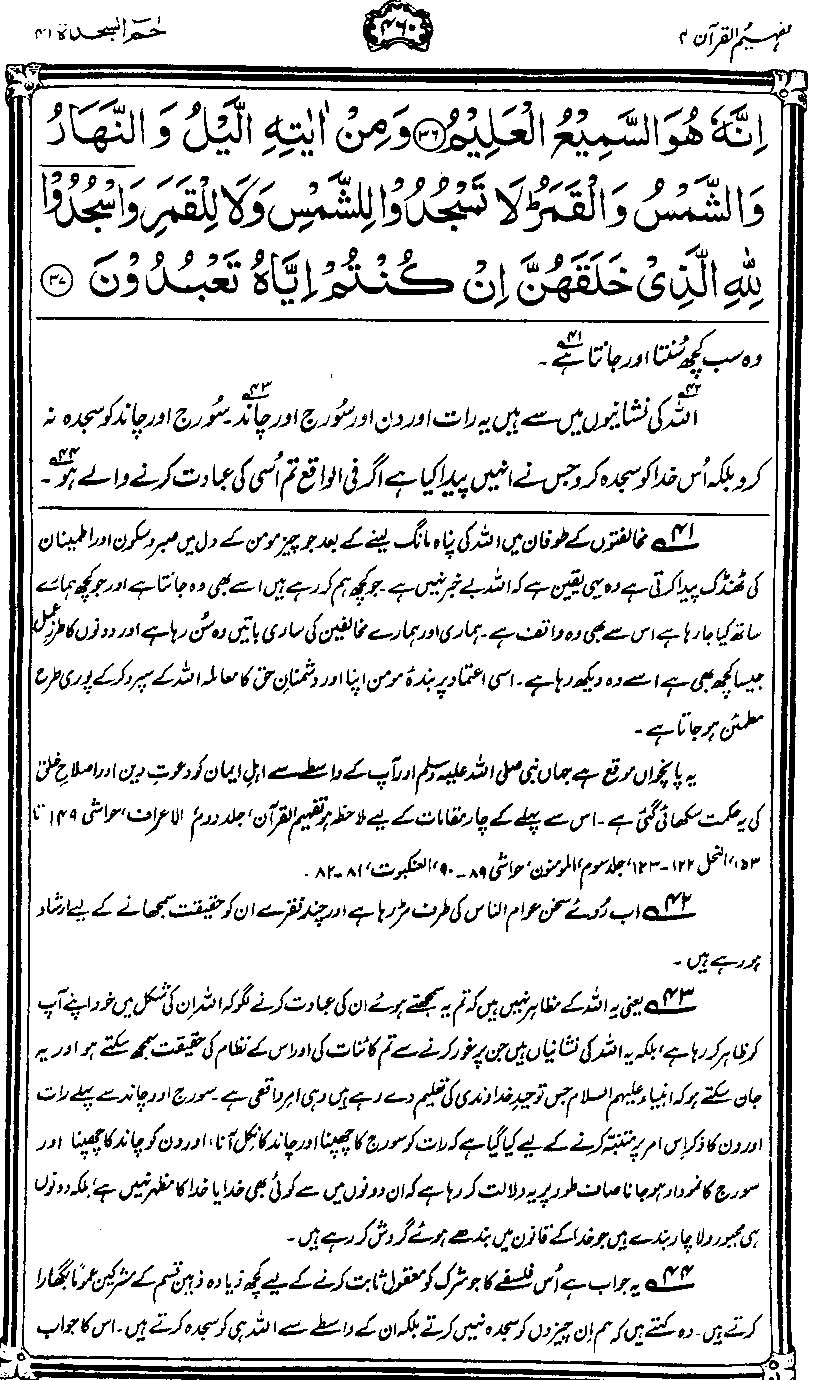 تفہیم القرآن ۴
۴۶۰
حٰمٓ السجدۃ ۴۱
اِنَّهٗ هُوَ السَّمِيْعُ الْعَلِيْمُ ۳۶ وَمِنْ اٰيٰتِهِ الَّيْلُ وَالنَّهَارُ
وَالشَّمْسُ وَالْقَمَرُ لَا تَسْجُدُوْا لِلشَّمْسِ وَلَا لِلْقَمَرِ وَاسْجُدُوْا
لِلّٰهِ الَّذِيْ خَلَقَهُنَّ اِنْ كُنْتُمْ اِيَّاهُ تَعْبُدُوْنَ ۳۷
وہ سب کچھ سُنتا اور جانتا ہے ۴۱۔
۴۲ اللہ کی نشانیوں میں سے ہیں یہ رات اور دن اور سُورج اور چاند ۴۳۔ سُورج اور چاند کو سجدہ نہ
کرو بلکہ اُس خدا کو سجدہ کرو جس نے انہیں پیدا کیا ہے اگر فی الواقع تم اُسی کی عبادت کرنے والے ہو ۴۴۔
۴۱ مخالفتوں کے طوفان میں اللہ کی پناہ مانگ لینے کے بعد جو چیز مومن کے دل میں صبر و سکون اور اطمینان
کی ٹھنڈک پیدا کرتی ہے وہ یہی یقین ہے کہ اللہ بے خبر نہیں ہے۔ جو کچھ ہم کر رہے ہیں اسے بھی وہ جانتا ہے اور جو کچھ ہمارے
ساتھ کیا جا رہا ہے اس سے بھی وہ واقف ہے۔ ہماری اور ہمارے مخالفین کی ساری باتیں وہ سُن رہا ہے اور دونوں کا طرزِ عمل
جیسا کچھ بھی ہے اسے وہ دیکھ رہا ہے۔ اسی اعتماد پر بندۂ مومن اپنا اور دشمنانِ حق کا معاملہ اللہ کے سپرد کر کے پوری طرح
مطمئن ہو جاتا ہے۔
یہ پانچواں موقع ہے جہاں نبی صلی اللہ علیہ وسلم اور آپ کے واسطے سے اہلِ ایمان کو دعوتِ دین اور اصلاحِ خلق
کی یہ حکمت سکھائی گئی ہے۔ اس سے پہلے کے چار مقامات کے لیے ملاحظہ ہو تفہیم القرآن، جلد دوم، الاعراف، حواشی ۱۴۹ تا
۱۵۳، النحل ۱۲۲-۱۲۳، جلد سوم، المومنون، حواشی ۸۹-۹۰، العنکبوت، ۸۱-۸۲۔
۴۲ اب رُوئے سخن عوام الناس کی طرف مڑ رہا ہے اور چند فقرے ان کو حقیقت سمجھانے کے لیے ارشاد
ہو رہے ہیں۔
۴۳ یعنی یہ اللہ کے مظاہر نہیں ہیں کہ تم یہ سمجھتے ہوئے ان کی عبادت کرنے لگو کہ اللہ ان کی شکل میں خود اپنے آپ
کو ظاہر کر رہا ہے، بلکہ یہ اللہ کی نشانیاں ہیں جن پر غور کرنے سے تم کائنات کی اور اس کے نظام کی حقیقت سمجھ سکتے ہو اور یہ
جان سکتے ہو کہ انبیاء علیہم السلام جس توحیدِ خداوندی کی تعلیم دے رہے ہیں وہی امرِ واقعی ہے۔ سورج اور چاند سے پہلے رات
اور دن کا ذکر اِس امر پر متنبہ کرنے کے لیے کیا گیا ہے کہ رات کو سورج کا چھپنا اور چاند کا نکل آنا، اور دن کو چاند کا چھپنا اور
سورج کا نمودار ہو جانا صاف طور پر یہ دلالت کر رہا ہے کہ ان دونوں میں سے کوئی بھی خدا یا خدا کا مظہر نہیں ہے، بلکہ دونوں
ہی مجبور و لاچار بندے ہیں جو خدا کے قانون میں بندھے ہوئے گردش کر رہے ہیں۔
۴۴ یہ جواب ہے اُس فلسفے کا جو شرک کو معقول ثابت کرنے کے لیے کچھ زیادہ ذہین قسم کے مشرکین عموماً بگھارا
کرتے ہیں۔ وہ کہتے ہیں کہ ہم اِن چیزوں کو سجدہ نہیں کرتے بلکہ ان کے واسطے سے اللہ ہی کو سجدہ کرتے ہیں۔ اس کا جواب